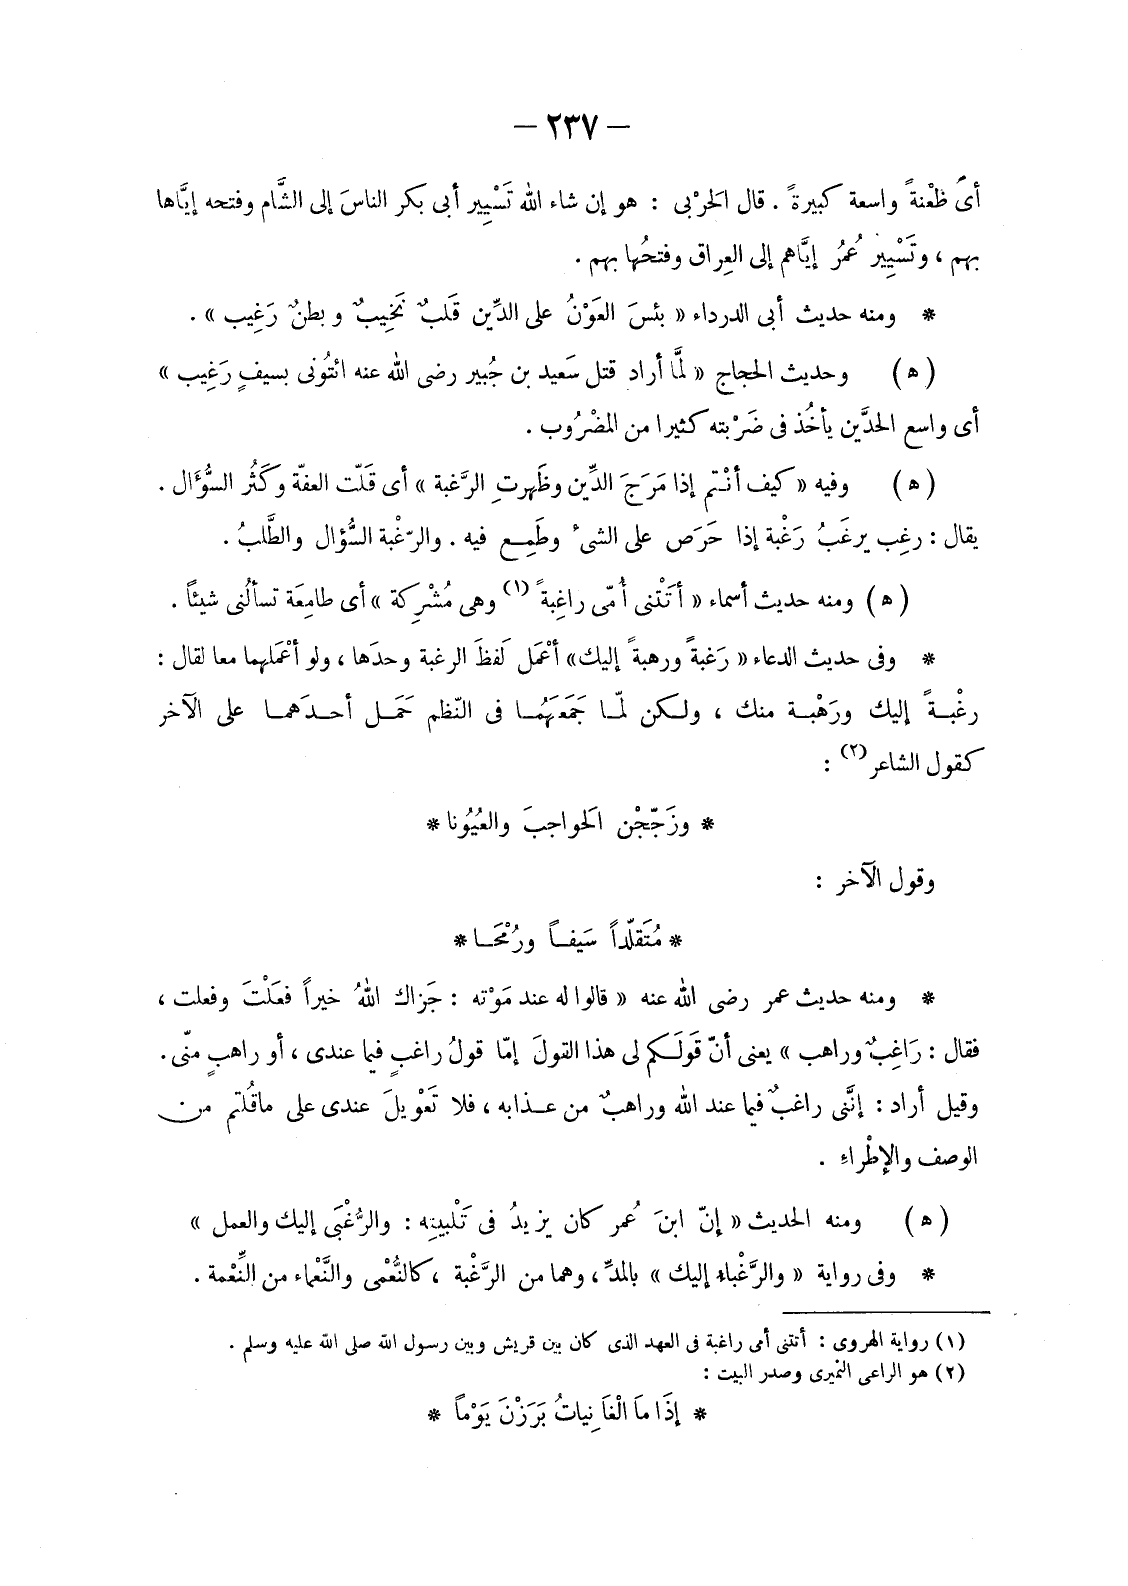 — ٢٣٧ —
أىْ ظَعْنةً واسعة كبيرةً . قال الحَرْبى : هو إن شاء اللّه تَسْيِير أبى بكر الناسَ إلى الشَّام وفتحه إيَّاها
بهم ، وتَسْيِير عُمرُ إيَّاهم إلى العِراق وفتحُها بهم .
* ومنه حديث أبى الدرداء « بئسَ العَوْنُ على الدِّين قَلبٌ نَخِيبٌ وبطنٌ رَغِيب » .
( ه ) وحديث الحجاج « لمَّا أراد قتل سَعيد بن جُبير رضى اللّه عنه ائتُونى بسيفٍ رَغِيب »
أى واسع الحدَّين يأخُذ فى ضَرْبته كثيرا من المضْرُوب .
( ه ) وفيه « كيف أنْتم إذا مَرَجَ الدِّين وظَهرتِ الرَّغبة » أى قَلّت العفّة وكَثُر السُّؤَال .
يقال : رغِب يرغَبُ رَغْبة إذا حَرَص على الشىء وطَمِع فيه . والرّغْبة السُّؤال والطَّلبُ .
( ه ) ومنه حديث أسماء « أتَتْنى أُمّى راغِبةً (١) وهى مُشْرِكة » أى طامِعَة تسألُنى شيئاً .
* وفى حديث الدعاء « رَغبةً ورهبةً إليك» أعْمَل لَفظَ الرغبة وحدَها ، ولو أعْمَلهما معا لقال :
رغْبةً إليك ورَهْبة منك ، ولكن لمّا جَمَعَهُما فى النّظم حَمَل أحدَهما على الآخر
كقول الشاعر (٢) :
* وزَجّجْن الحَواجبَ والعُيُونا *
وقول الآخر :
* مُتَقلّداً سَيفاً ورُمْحَا *
* ومنه حديث عمر رضى اللّه عنه « قالوا له عند مَوْته : جَزاك اللّهُ خيراً فعَلْتَ وفعلت ،
فقال : رَاغِبٌ وراهب » يعنى أنّ قَولَكم لى هذا القولَ إمّا قولُ راغبٍ فيما عندى ، أو راهبٍ منّى .
وقيل أراد : إنَّنى راغبٌ فيما عند اللّه وراهبٌ من عذابه ، فلا تَعْويلَ عندى على ماقُلتم من
الوصف والإطْراءِ .
( ه ) ومنه الحديث « إنّ ابنَ عُمر كان يزيدُ فى تَلْبيته : والرُّغْبَى إليك والعمل »
* وفى رواية « والرَّغْباءُ إليك » بالمدِّ ، وهما من الرَّغْبة ، كالنُّعْمى والنَّعْماء من النِّعْمة .
(١) رواية الهروى : أتتنى أمى راغبة فى العهد الذى كان بين قريش وبين رسول اللّه صلى اللّه عليه وسلم .
(٢) هو الراعى النميرى وصدر البيت :
* إذَا مَا الْغَانِياتُ بَرَزْنَ يَوْماً *